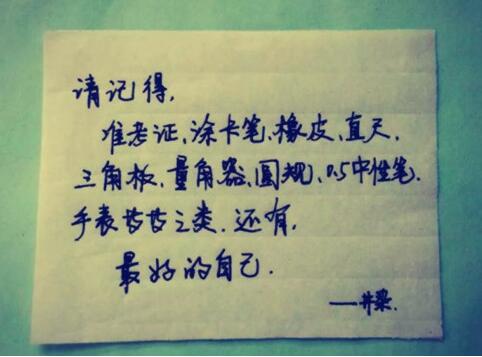 请记得,
准考证、涂卡笔、橡皮、直尺、
三角板、量角器、圆规、0.5中性笔、
手表等等之类.还有,
最好的自己.
——井梁.